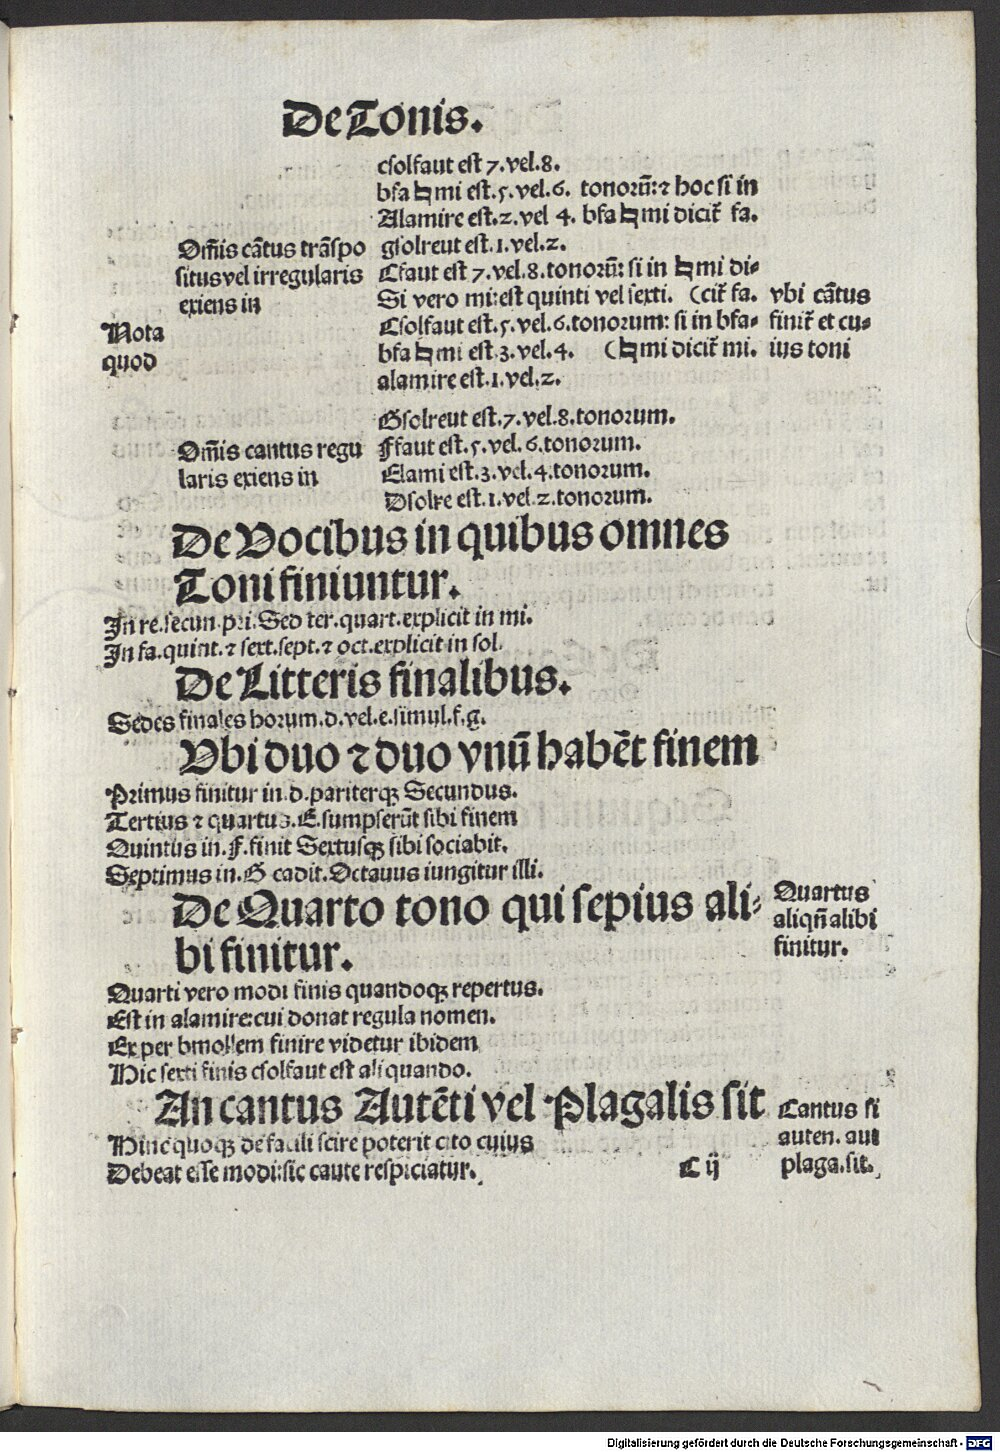 De Tonis.
csolfaut est 7. vel. 8.
bfa ♮ mi est. 5. vel. 6. tonorū: ⁊ hoc si in
Alamire est. 2. vel 4. bfa ♮ mi dicit᷑ fa.
Om̄is cātus trāspo
situs vel irregularis
exiens in
gsolreut est. 1. vel. 2.
Cfaut est 7. vel. 8. tonorū: si in ♮ mi di⸗
Si vero mi: est quinti vel sexti. (cit᷑ fa.
Csolfaut est. 5. vel. 6. tonorum: si in bfa⸗
bfa ♮ mi est. 3. vel. 4. (♮ mi dicit᷑ mi.
alamire est. 1. vel. 2.
vbi cātus
finit᷑ et cu⸗
ius toni
Nota
quod
Om̄is cantus regu
laris exiens in
Gsolreut est. 7. vel. 8. tonorum.
Ffaut est. 5. vel. 6. tonorum.
Elami est. 3. vel. 4. tonorum.
Dsolre est. 1. vel. 2. tonorum.
De Vocibus in quibus omnes
Toni finiuntur.
In re. secun. pri. Sed ter. quart. explicit in mi.
In fa. quint. ⁊ sext. sept. ⁊ oct. explicit in sol.
De Litteris finalibus.
Sedes finales horum. d. vel. e. simul. f. g.
Vbi duo ⁊ duo vnū habēt finem
Primus finitur in. d. pariterqꝫ Secundus.
Tertius ⁊ quartus. E. sumpserūt sibi finem
Quintus in. F. finit Sextusqꝫ sibi sociabit.
Septimus in. G cadit. Octauus iungitur illi.
De Quarto tono qui sepius ali⸗
bi finitur.
Quartus
aliqn̄ alibi
finitur.
Quarti vero modi finis quandoqꝫ repertus.
Est in alamire: cui donat regula nomen.
Ex per bmollem finire videtur ibidem
Hic sexti finis csolfaut est aliquando.
An cantus Autēti vel Plagalis sit
Hinc quoqꝫ de facili scire poterit cito cuius
Debeat esse modi: sic caute respiciatur.
C ij
Cantus si
auten. aut
plaga. sit.
Digitalisierung gefördert durch die Deutsche Forschungsgemeinschaft - DFG